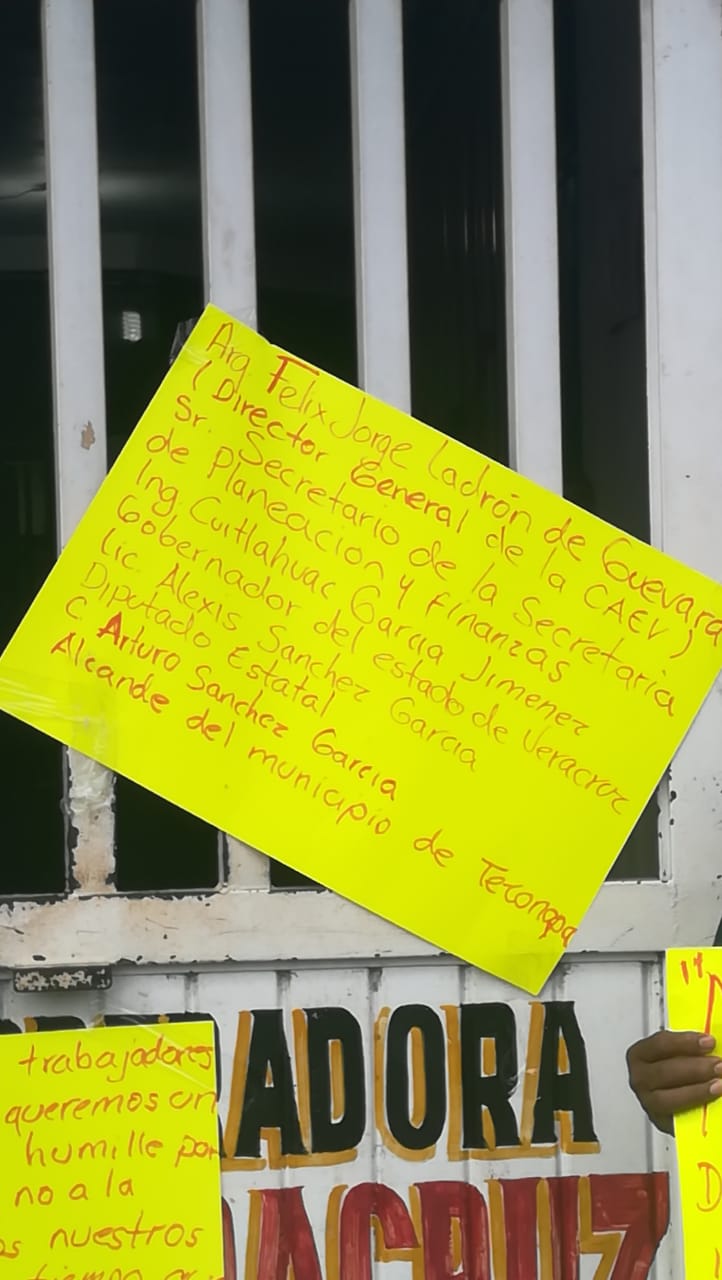 Arq Felix Jorge Ladrón de Guevara
(Director General de la CAEV)
Sr. Secretario de la Secretaria
de Planeacion y finanzas
Ing Cuitlahuac Garcia Jimenez
Gobernador del estado de Veracruz
Lic. Alexis Sanchez Garcia
Diputado Estatal
C. Arturo Sanchez Garcia
Alcande del municipio de Tezonapa
ADORA
trabajadores
queremos un
humille por
no a la
nuestros
ACRUZ